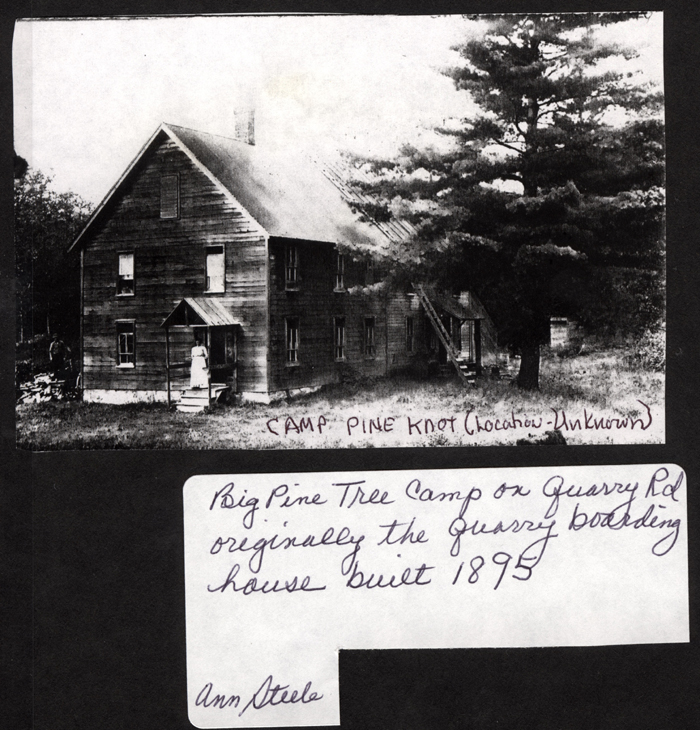 CAMP PINE KNOT (Location-Unknown)
Big Pine Tree Camp on Quarry Rd
originally the quarry boarding
house built 1895
Ann Steele